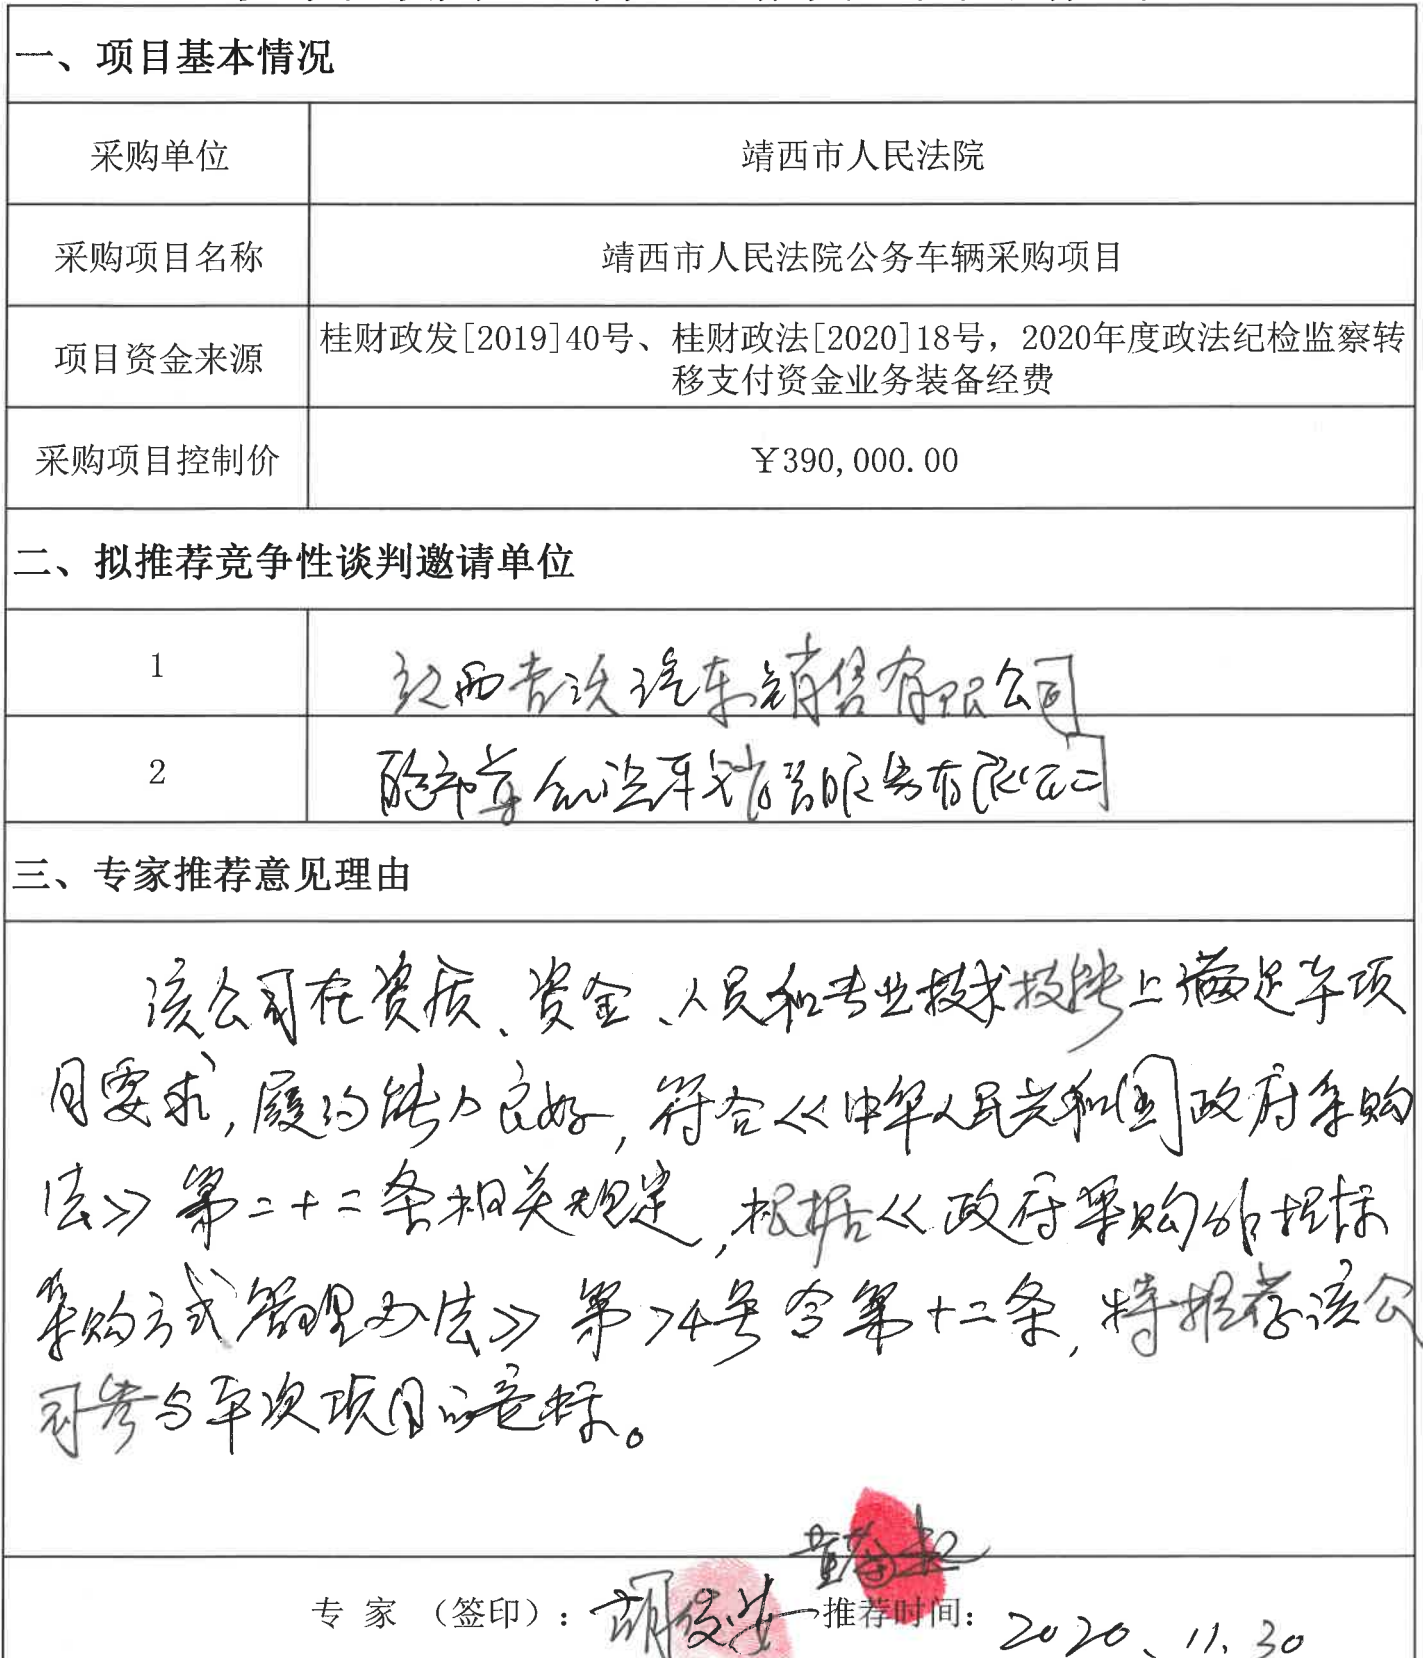 一、项目基本情况
采购单位
靖西市人民法院
采购项目名称
靖西市人民法院公务车辆采购项目
项目资金来源
桂财政发[2019]40号、桂财政法[2020]18号，2020年度政法纪检监察转
移支付资金业务装备经费
采购项目控制价
￥390,000.00
二、拟推荐竞争性谈判邀请单位
1
靖西吉沃汽车销售有限公司
2
百色市 汽车销售服务有限公司
三、专家推荐意见理由
该公司在资质、资金、人员和专业技术技能上满足本项
目要求,履约能力良好,符合《中华人民共和国政府采购
法》第二十二条相关规定,根据《政府采购非招标
采购方式管理办法》第74号令第十二条,特推荐该公
司参与本次项目的竞标。
专 家 （签印）：
推荐时间：
2020、11、30